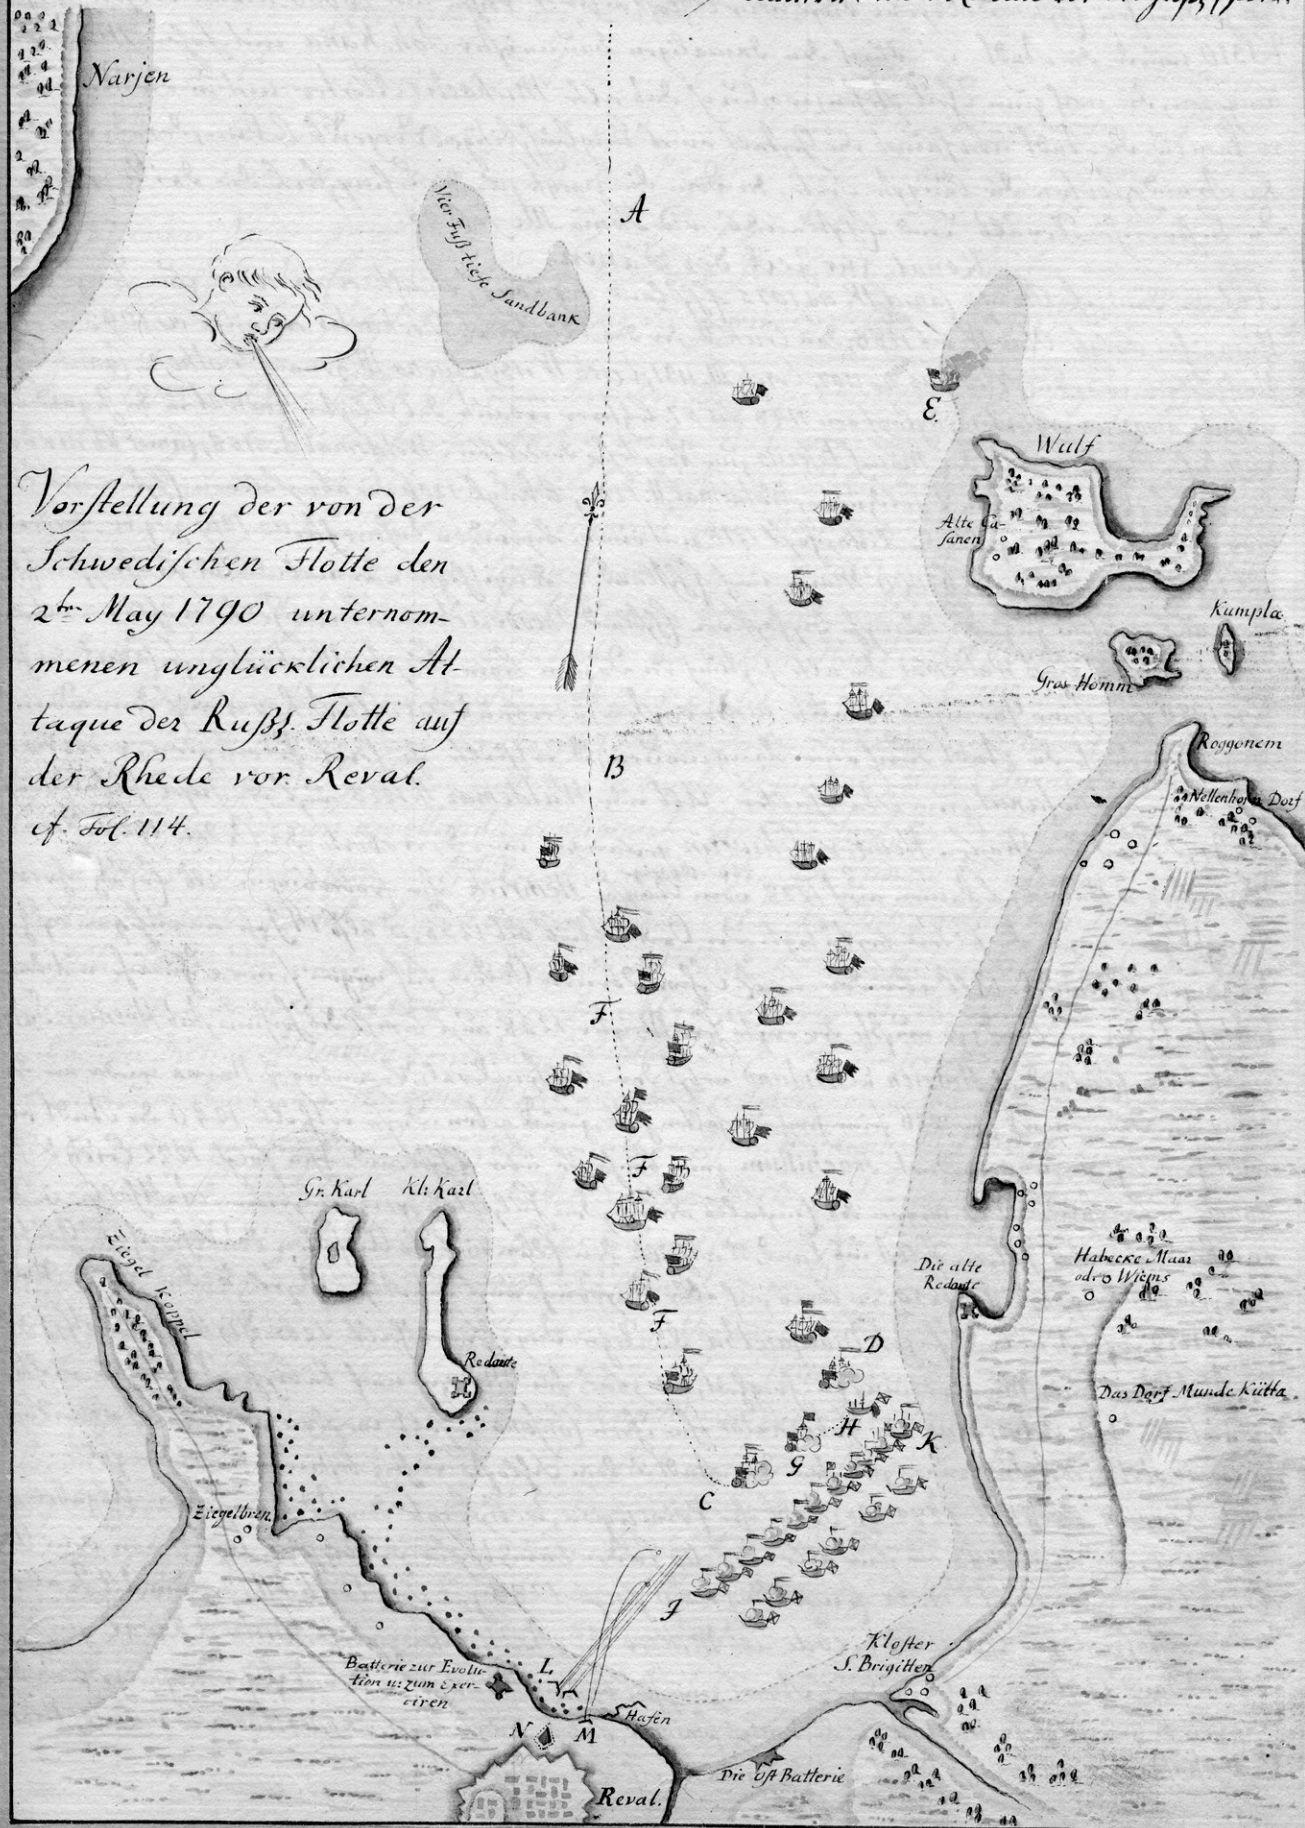 Narjen
A
Vier Fuß tiefe Sandbank
E.
Wulf
Alte Ca-
sanen
Kumplæ
Gros Homm
Roggonem
Nellenhorn Dorf
Vorstellung der von der
Schwedischen Flotte den
2ten May 1790 unternom-
menen unglücklichen At
taque der Rußs. Flotte auf
der Rhede vor Reval.
cf. Fol. 114.
B
F
F
F
Gr. Karl
Kl: Karl
Ziegel Koppel
Redoute
Die alte
Redoute
Habecke Maar
od. Wiems
Das Dorf Munde Kütta.
D
H
K
G
C
J
Ziegelbren.
Batterie zur Evolu-
tion u: zum Exer-
ciren
L
Hafen
N
M
Kloster
S. Brigitten
Die Ost Batterie
Reval.